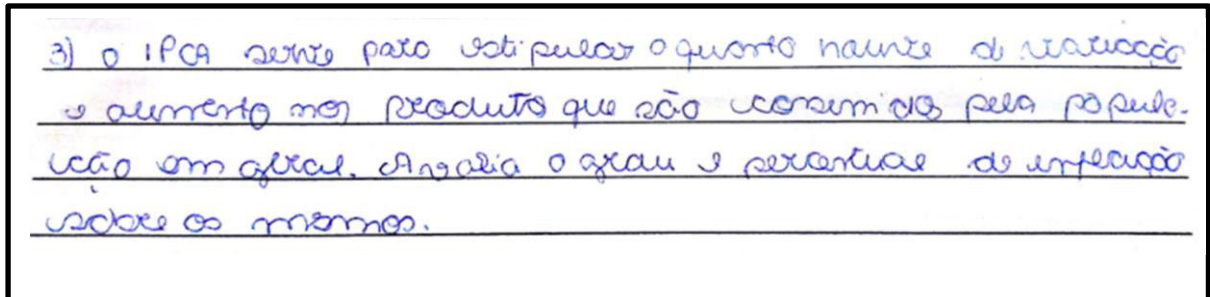 3) O IPCA serve para estipular o quanto houve de variação
e aumento nos produto que são consumidos pela popula-
ção em geral. Avalia o grau e percentual de inflação
sobre os mesmos.